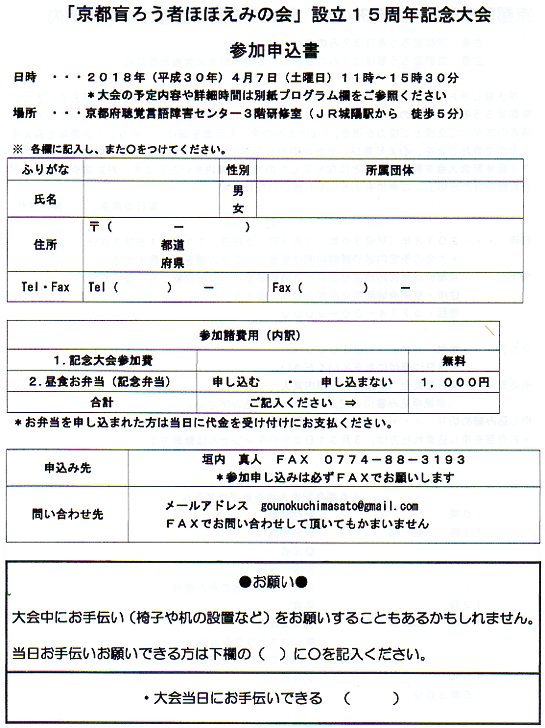 「京都盲ろう者ほほえみの会」設立１５周年記念大会
参加申込書
日時　・・・２０１８年（平成３０年）４月７日（土曜日）１１時～１５時３０分
＊大会の予定内容や詳細時間は別紙プログラム欄をご参照ください
場所　・・・京都府聴覚言語障害センター３階研修室（ＪＲ城陽駅から　徒歩５分）
※ 各欄に記入し、また〇をつけてください。
ふりがな　性別　所属団体
氏名　男
女
〒（　　　－　　　）
住所　都道
府県
Tel・Fax　Tel（　　　）　－　Fax（　　　）　－
参加諸費用（内訳）
１.記念大会参加費　無料
２.昼食お弁当（記念弁当）　申し込む　・　申し込まない　１，０００円
合計　ご記入ください　⇒
＊お弁当を申し込まれた方は当日に代金を受け付けにお支払ください。
申込み先　垣内　真人　ＦＡＸ　０７７４－８８－３１９３
＊参加申し込みは必ずＦＡＸでお願いします
問い合わせ先　メールアドレス　gounokuchimasato@gmail.com
ＦＡＸでお問い合わせして頂いてもかまいません
●お願い●
大会中にお手伝い（椅子や机の設置など）をお願いすることもあるかもしれません。
当日お手伝いお願いできる方は下欄の（　）に〇を記入ください。
・大会当日にお手伝いできる　（　　　）